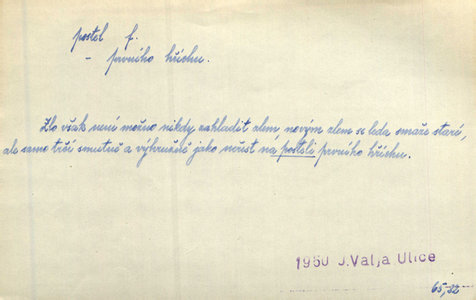 postel f.
- prvního hříchu.
Zlo však není možno nikdy zahladit zlem, novým zlem se leda smaže staré,
ale samo trčí smutně a výhružně jako neřest na posteli prvního hříchu.
1960 J.Valja Ulice
65,32